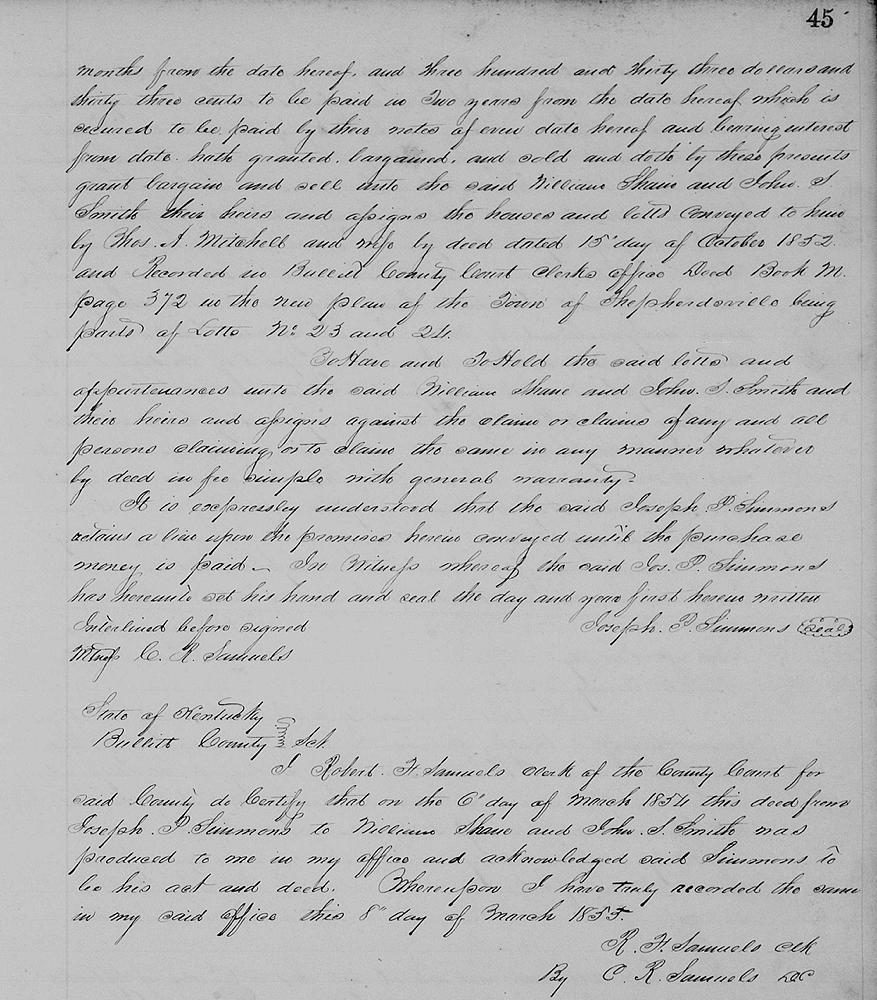 45
months from the date hereof, and three hundred and thirty three dollars and
thirty three cents to be paid in Two years from the date hereof which is
secured to be paid by their notes of even date hereof and bearing interest
from date. hath granted, bargained, and sold and doth by these presents
grant bargain and sell unto the said William Shane and John. S.
Smith their heirs and assigns the houses and lotts conveyed to him
by Thos. A. Mitchell and wife by deed dated 15' day of October 1852.
and Recorded in Bullitt County Court Clerks office Deed Book M.
page 372 in the new plan of the Town of Shepherdsville being
parts of Lotts No 23 and 24.
To Have and To Hold the said lotts and
appurtenances unto the said William Shane and John. S. Smith and
their heirs and assigns against the claim or claims of any and all
persons claiming, or to claim the same in any manner whatever
by deed in fee simple with general warranty.
It is expressley understood that the said Joseph. P. Simmons
retains a lien upon the premises herein conveyed until the purchase
money is paid. In Witness whereof the said Jos. P. Simmons
has hereunto set his hand and seal the day and year first herein written
Interlined before signed Joseph. P. Simmons Seal
Witness C. R. Samuels
State of Kentucky
Bullitt County Sct.
I Robert. F. Samuels clerk of the County Court for
said County do Certify that on the 6' day of March 1854 this deed from
Joseph. P. Simmons to William Shane and John. S. Smith was
produced to me in my office and acknowledged said Simmons to
be his act and deed. Whereupon I have truly recorded the same
in my said office this 8" day of March 1855.
R. F. Samuels Clk
By C. R. Samuels DC